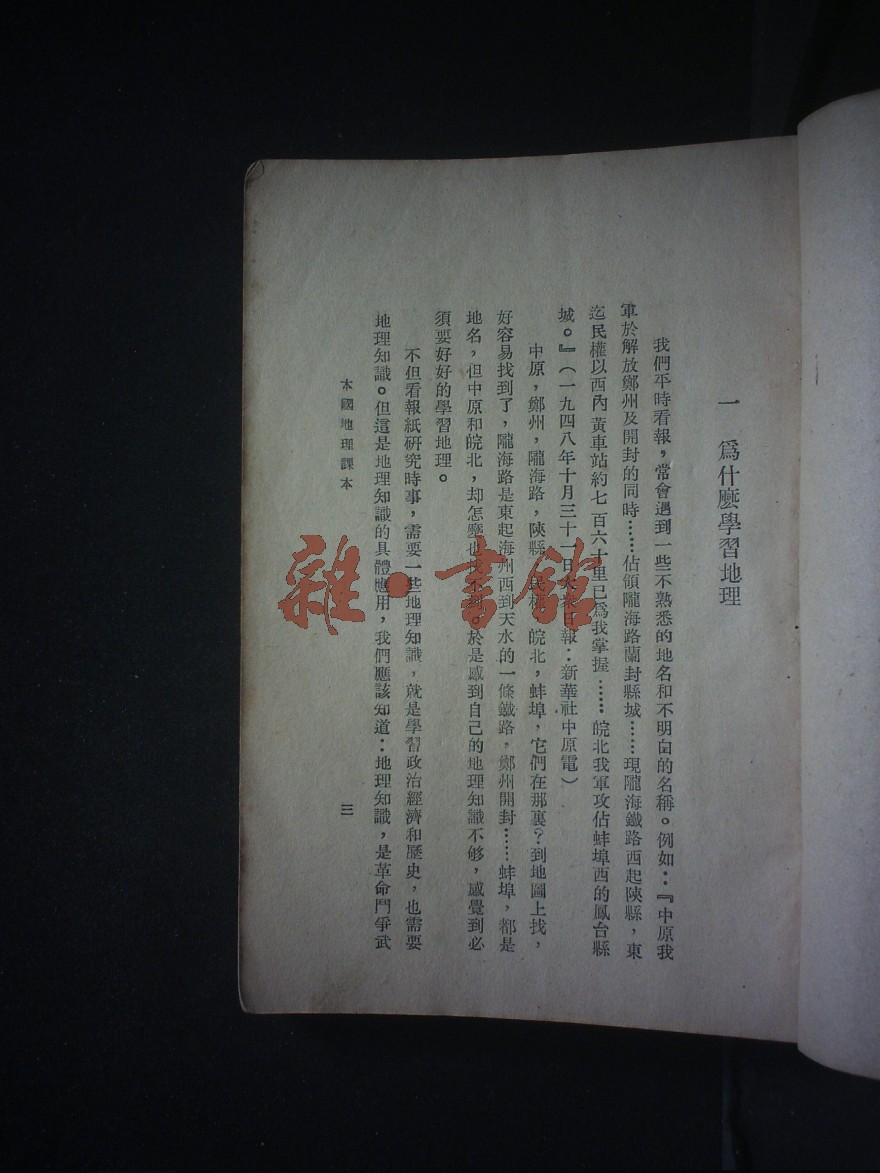 一 爲什麽學習地理
我們平時看報，常會遇到一些不熟悉的地名和不明白的名稱。例如：『中原我
軍於解放鄭州及開封的同時……佔領隴海路蘭封縣城……現隴海鐵路西起陜縣，東
迄民權以西內黃車站約七百六十里已爲我掌握……皖北我軍攻佔蚌埠西的鳳台縣
城。』（一九四八年十月三十一日大衆日報：新華社中原電）
中原，鄭州，隴海路，陜縣，民權，皖北，蚌埠，它們在那裏？到地圖上找，
好容易找到了，隴海路是東起海州西到天水的一條鐵路，鄭州開封……蚌埠，都是
地名，但中原和皖北，却怎麽也找不到。於是感到自己的地理知識不够，感覺到必
須要好好的學習地理。
不但看報紙研究時事，需要一些地理知識，就是學習政治經濟和歷史，也需要
地理知識。但這是地理知識的具體應用，我們應該知道：地理知識，是革命鬥爭武
本國地理課本
三
雜·書館